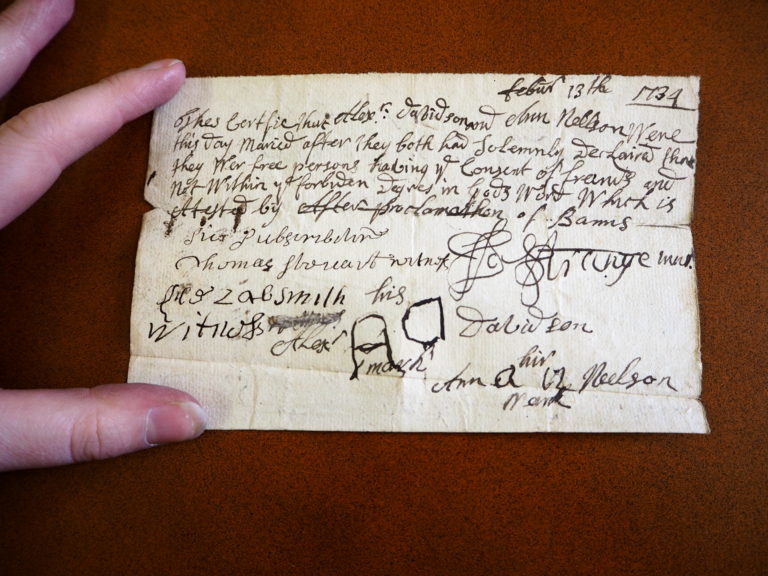 Febur 13th 1734
Thes Certfie that Alexr: Davidson and Ann Nellson Were
this Day Maried after they both had Solemnly Declaired that
they Wer free persons having ye Consent of freands and
Not Within ye forbiden Degres in Gods Word Which is
Atested by After proclamation of Banns
Thomas Stouart witnes Jo Strange minr.
smith his
Witness Alexr A D Davidson
mark
his
Ann a n Neelson
Mark